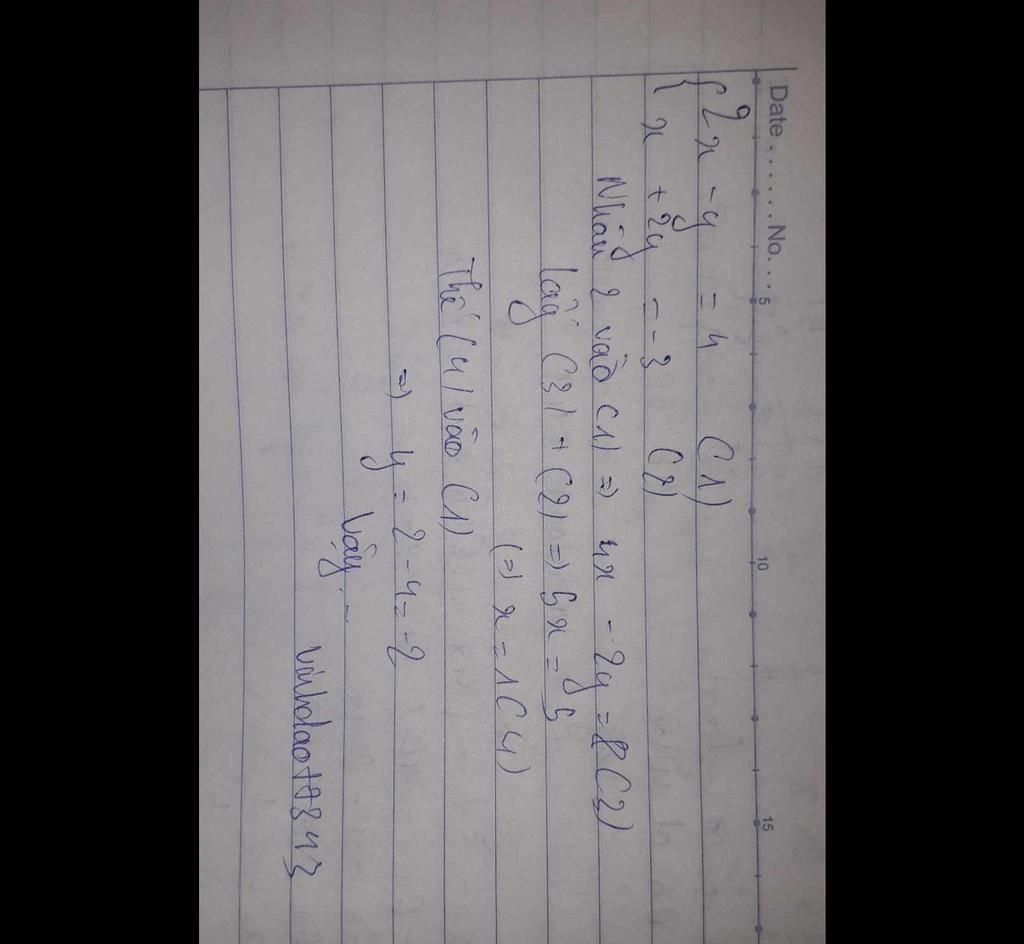 Date ....... No. ...
5 10 15
{ 2x - y = 4 (1)
x + 2y = -3 (2)
Nhân 2 vào (1) => 4x - 2y = 8 (3)
lấy (3) + (2) => 5x = 5
(=) x = 1 (4)
Thế (4) vào (1)
=> y = 2 - 4 = -2
Vậy...